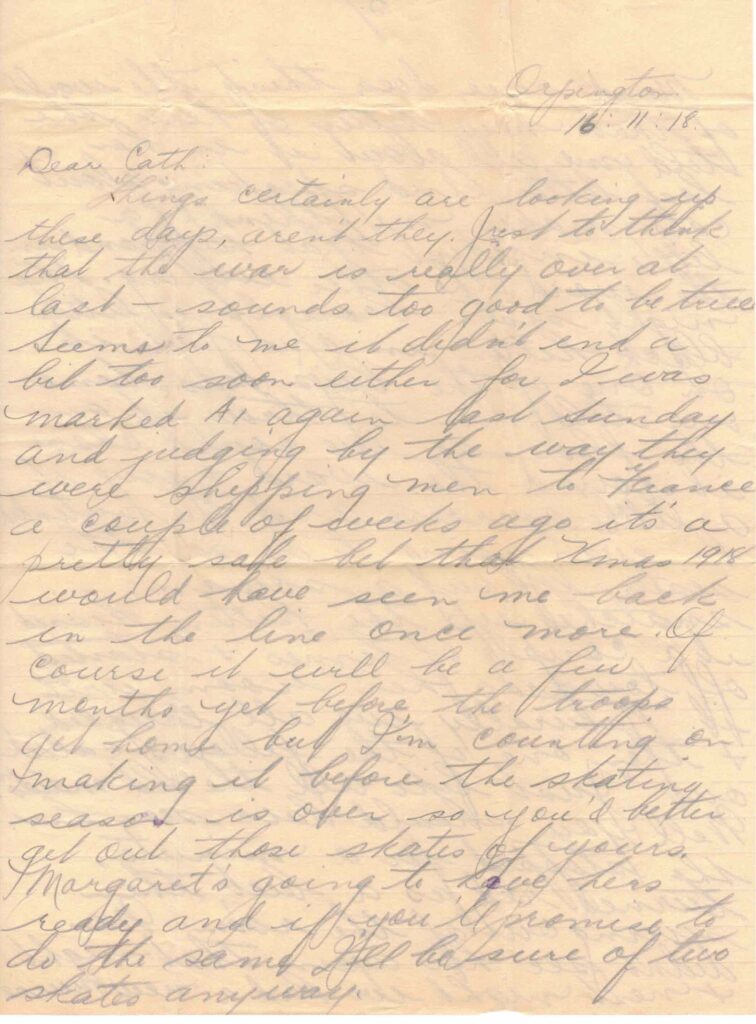 Orpington.
16:11:18.
Dear Cath:
Things certainly are looking up
these days, aren't they. Just to think
that the war is really over at
last – sounds too good to be true
seems to me it didn't end a
bit too soon either for I was
marked A1 again last Sunday
and judging by the way they
were shipping men to France
a couple of weeks ago it's a
pretty safe bet that Xmas 1918
would have seen me back
in the line once more. Of
course it will be a few
months yet before the troops
get home but I'm counting on
making it before the skating
season is over so you'd better
get out those skates of yours.
Margaret's going to have hers
ready and if you'll promise to
do the same I'll be sure of two
skates anyway.